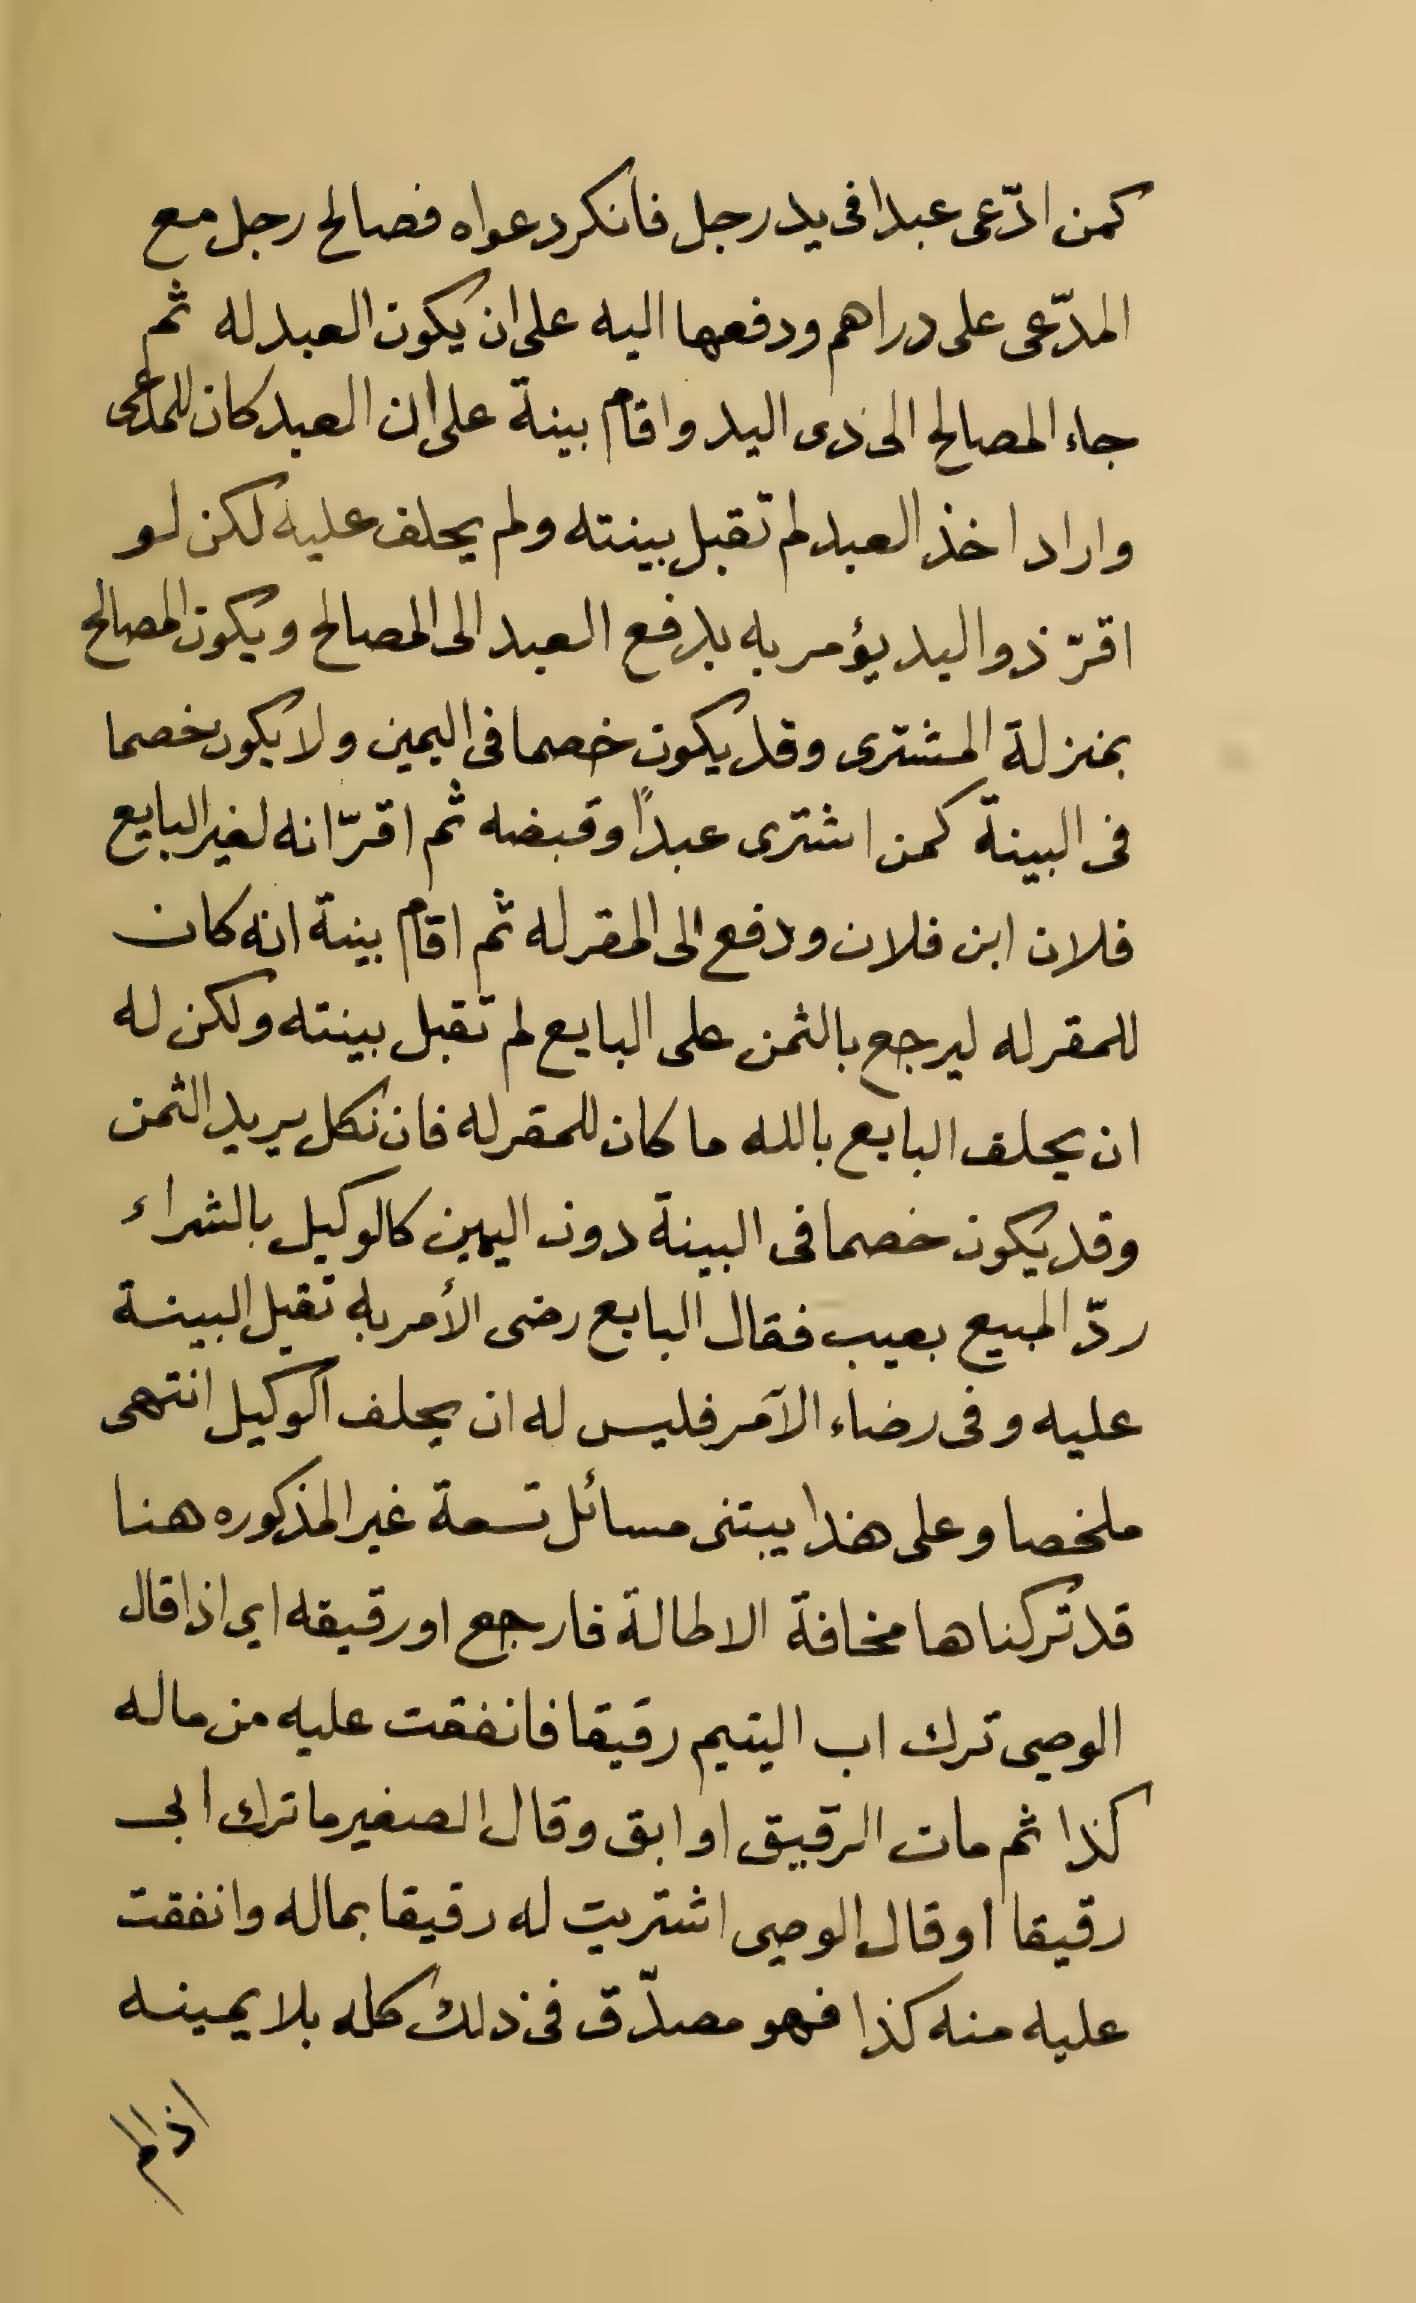 كمن ادّعى عبدا فى يد رجل فانكر دعواه فصالح رجل مع
المدّعى على دراهم ودفعها اليه على ان يكون العبد له ثم
جاء المصالح الى ذى اليد واقام بينة على ان العبد كان للمدعى
واراد اخذ العبد لم تقبل بينته ولم يحلف عليه لكن لو
اقرّ ذو اليد يؤمر به بدفع العبد الى المصالح ويكون المصالح
بمنزلة المشترى وقد يكون خصما فى اليمين ولا يكون خصما
فى البينة كمن اشترى عبدًا وقبضه ثم اقرّ انه لغير البايع
فلان ابن فلان ودفع الى المقر له ثم اقام بينة انه كان
للمقر له ليرجع بالثمن على البايع لم تقبل بينته ولكن له
ان يحلف البايع بالله ما كان للمقر له فان نكل يريد الثمن
وقد يكون خصما فى البينة دون اليمين كالوكيل بالشراء
ردّ المبيع بعيب فقال البايع رضى الأمر به تقبل البينة
عليه وفى رضاء الآمر فليس له ان يحلف الوكيل انتهى
ملخصا وعلى هذا يبتنى مسائل تسعة غير المذكوره هنا
قد تركناها مخافة الاطالة فارجع او رقيقه اى اذا قال
الوصى ترك اب اليتيم رقيقا فانفقت عليه من ماله
كذا ثم مات الرقيق او ابق وقال الصغير ما ترك ابى
رقيقا او قال الوصى اشتريت له رقيقا بماله وانفقت
عليه منه كذا فهو مصدّق فى ذلك كله بلا يمينه
اذ الم